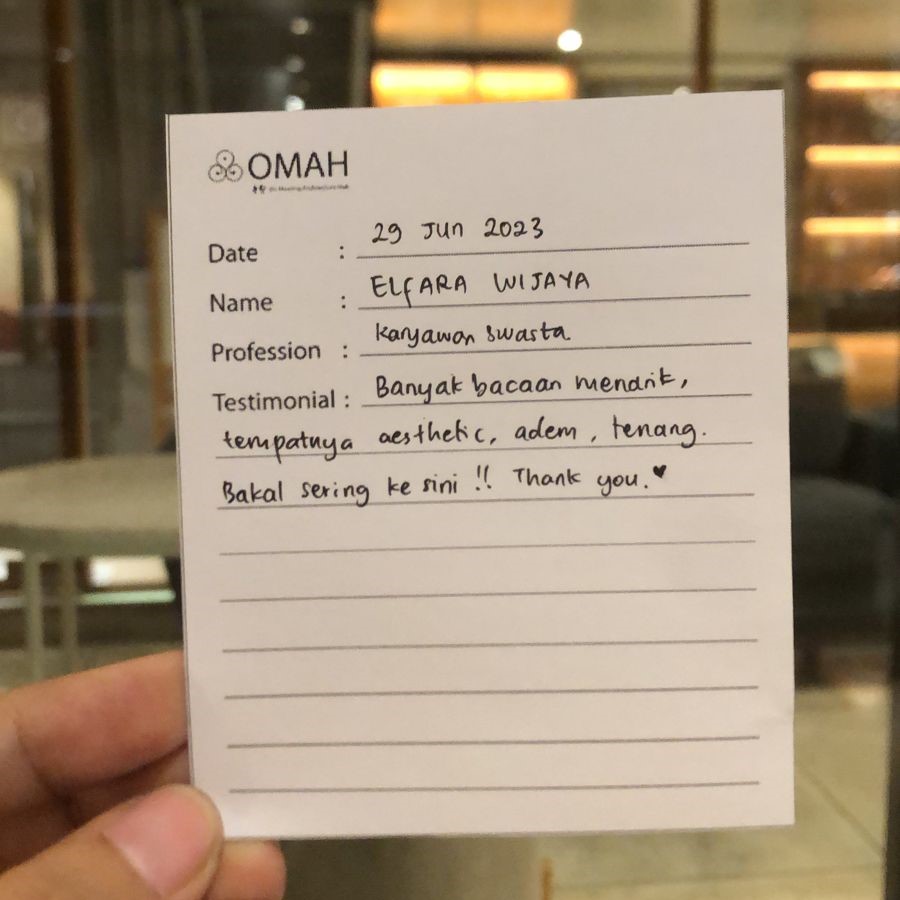 OMAH
Date : 29 Jun 2023
Name : ELFARA WIJAYA
Profession : Karyawan swasta
Testimonial : Banyak bacaan menarik,
tempatnya aesthetic, adem, tenang.
Bakal sering ke sini !! Thank you. ♥